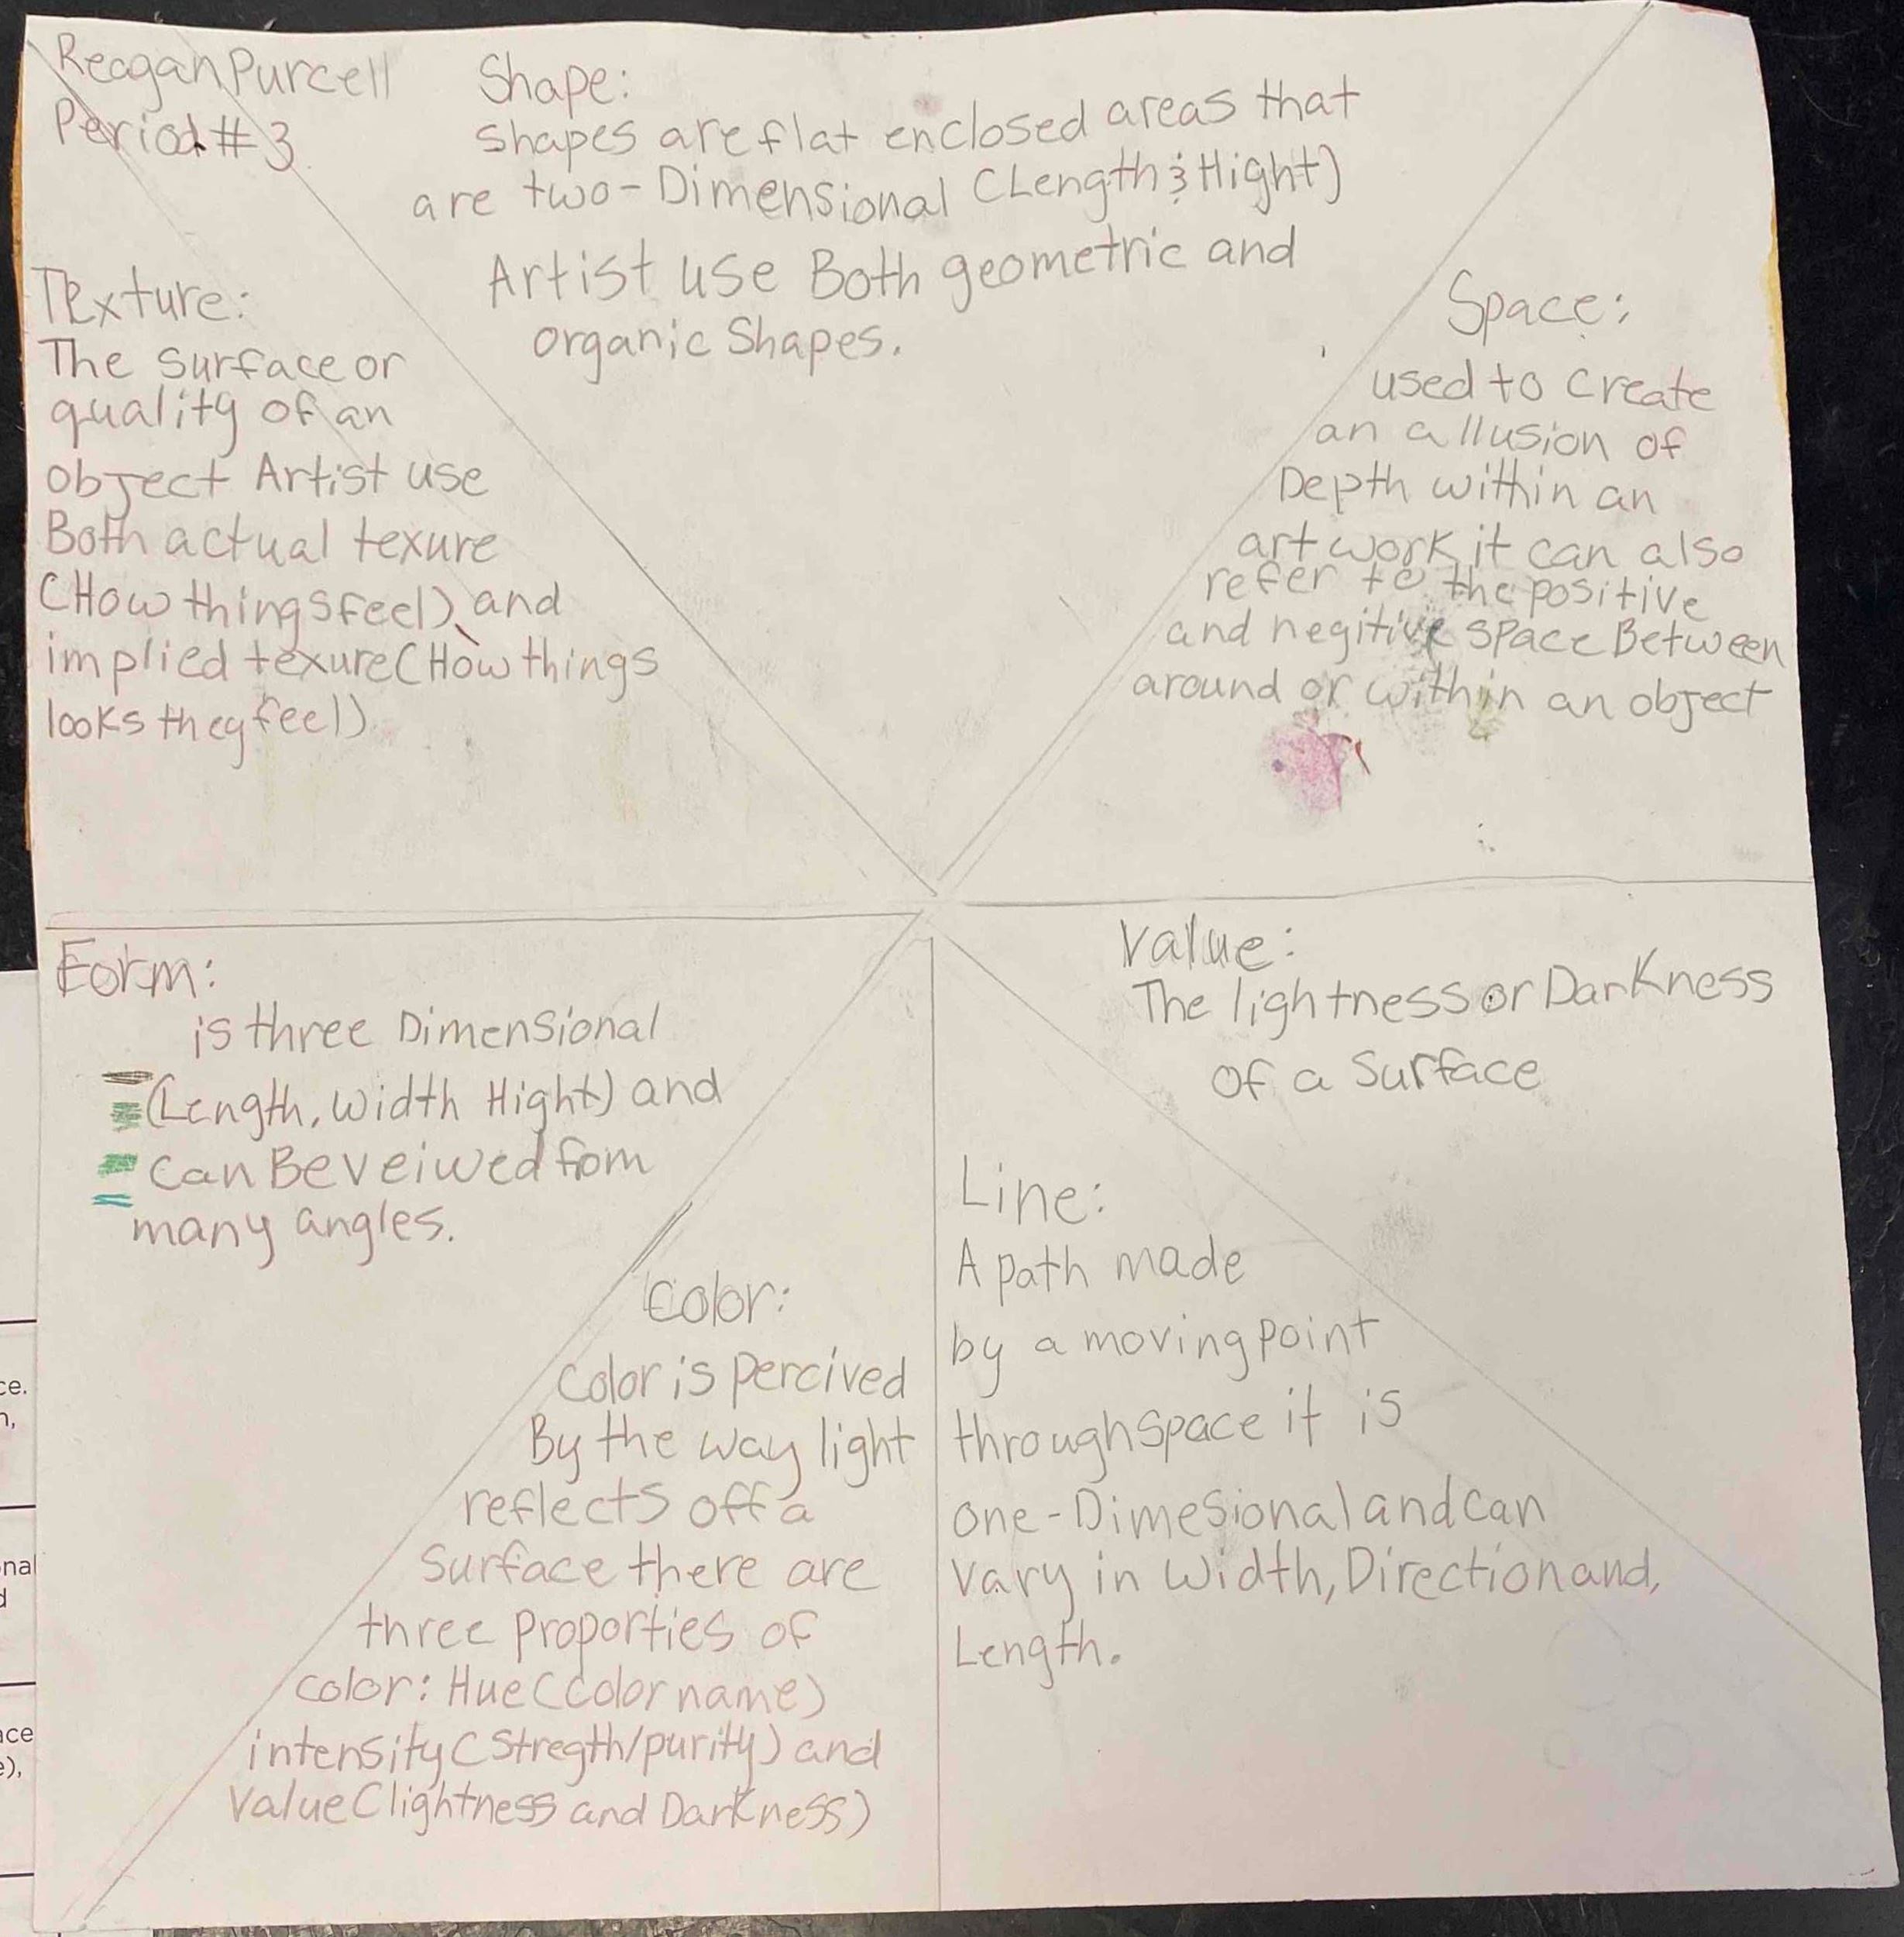 Reagan Purcell
Period #3
Shape:
Shapes are flat enclosed areas that
are two-Dimensional (Length & Hight)
Artist use Both geometric and
organic Shapes.
Texture:
The surface or
quality of an
object Artist use
Both actual texure
(How things feel) and
implied texure (How things
looks they feel)
Space:
used to create
an allusion of
Depth within an
art work it can also
refer to the positive
and negitive space Between
around or within an object
Form:
is three Dimensional
(Length, width Hight) and
can Be veiwed fom
many angles.
Value:
The lightness or Darkness
of a Surface
Color:
Color is percived
By the way light
reflects off a
Surface there are
three proporties of
color: Hue (color name)
intensity (Stregth/purity) and
Value (lightness and Darkness)
Line:
A path made
by a moving point
through space it is
one-Dimesional and can
vary in width, Direction and,
Length.
ce.
nal
ace
e),